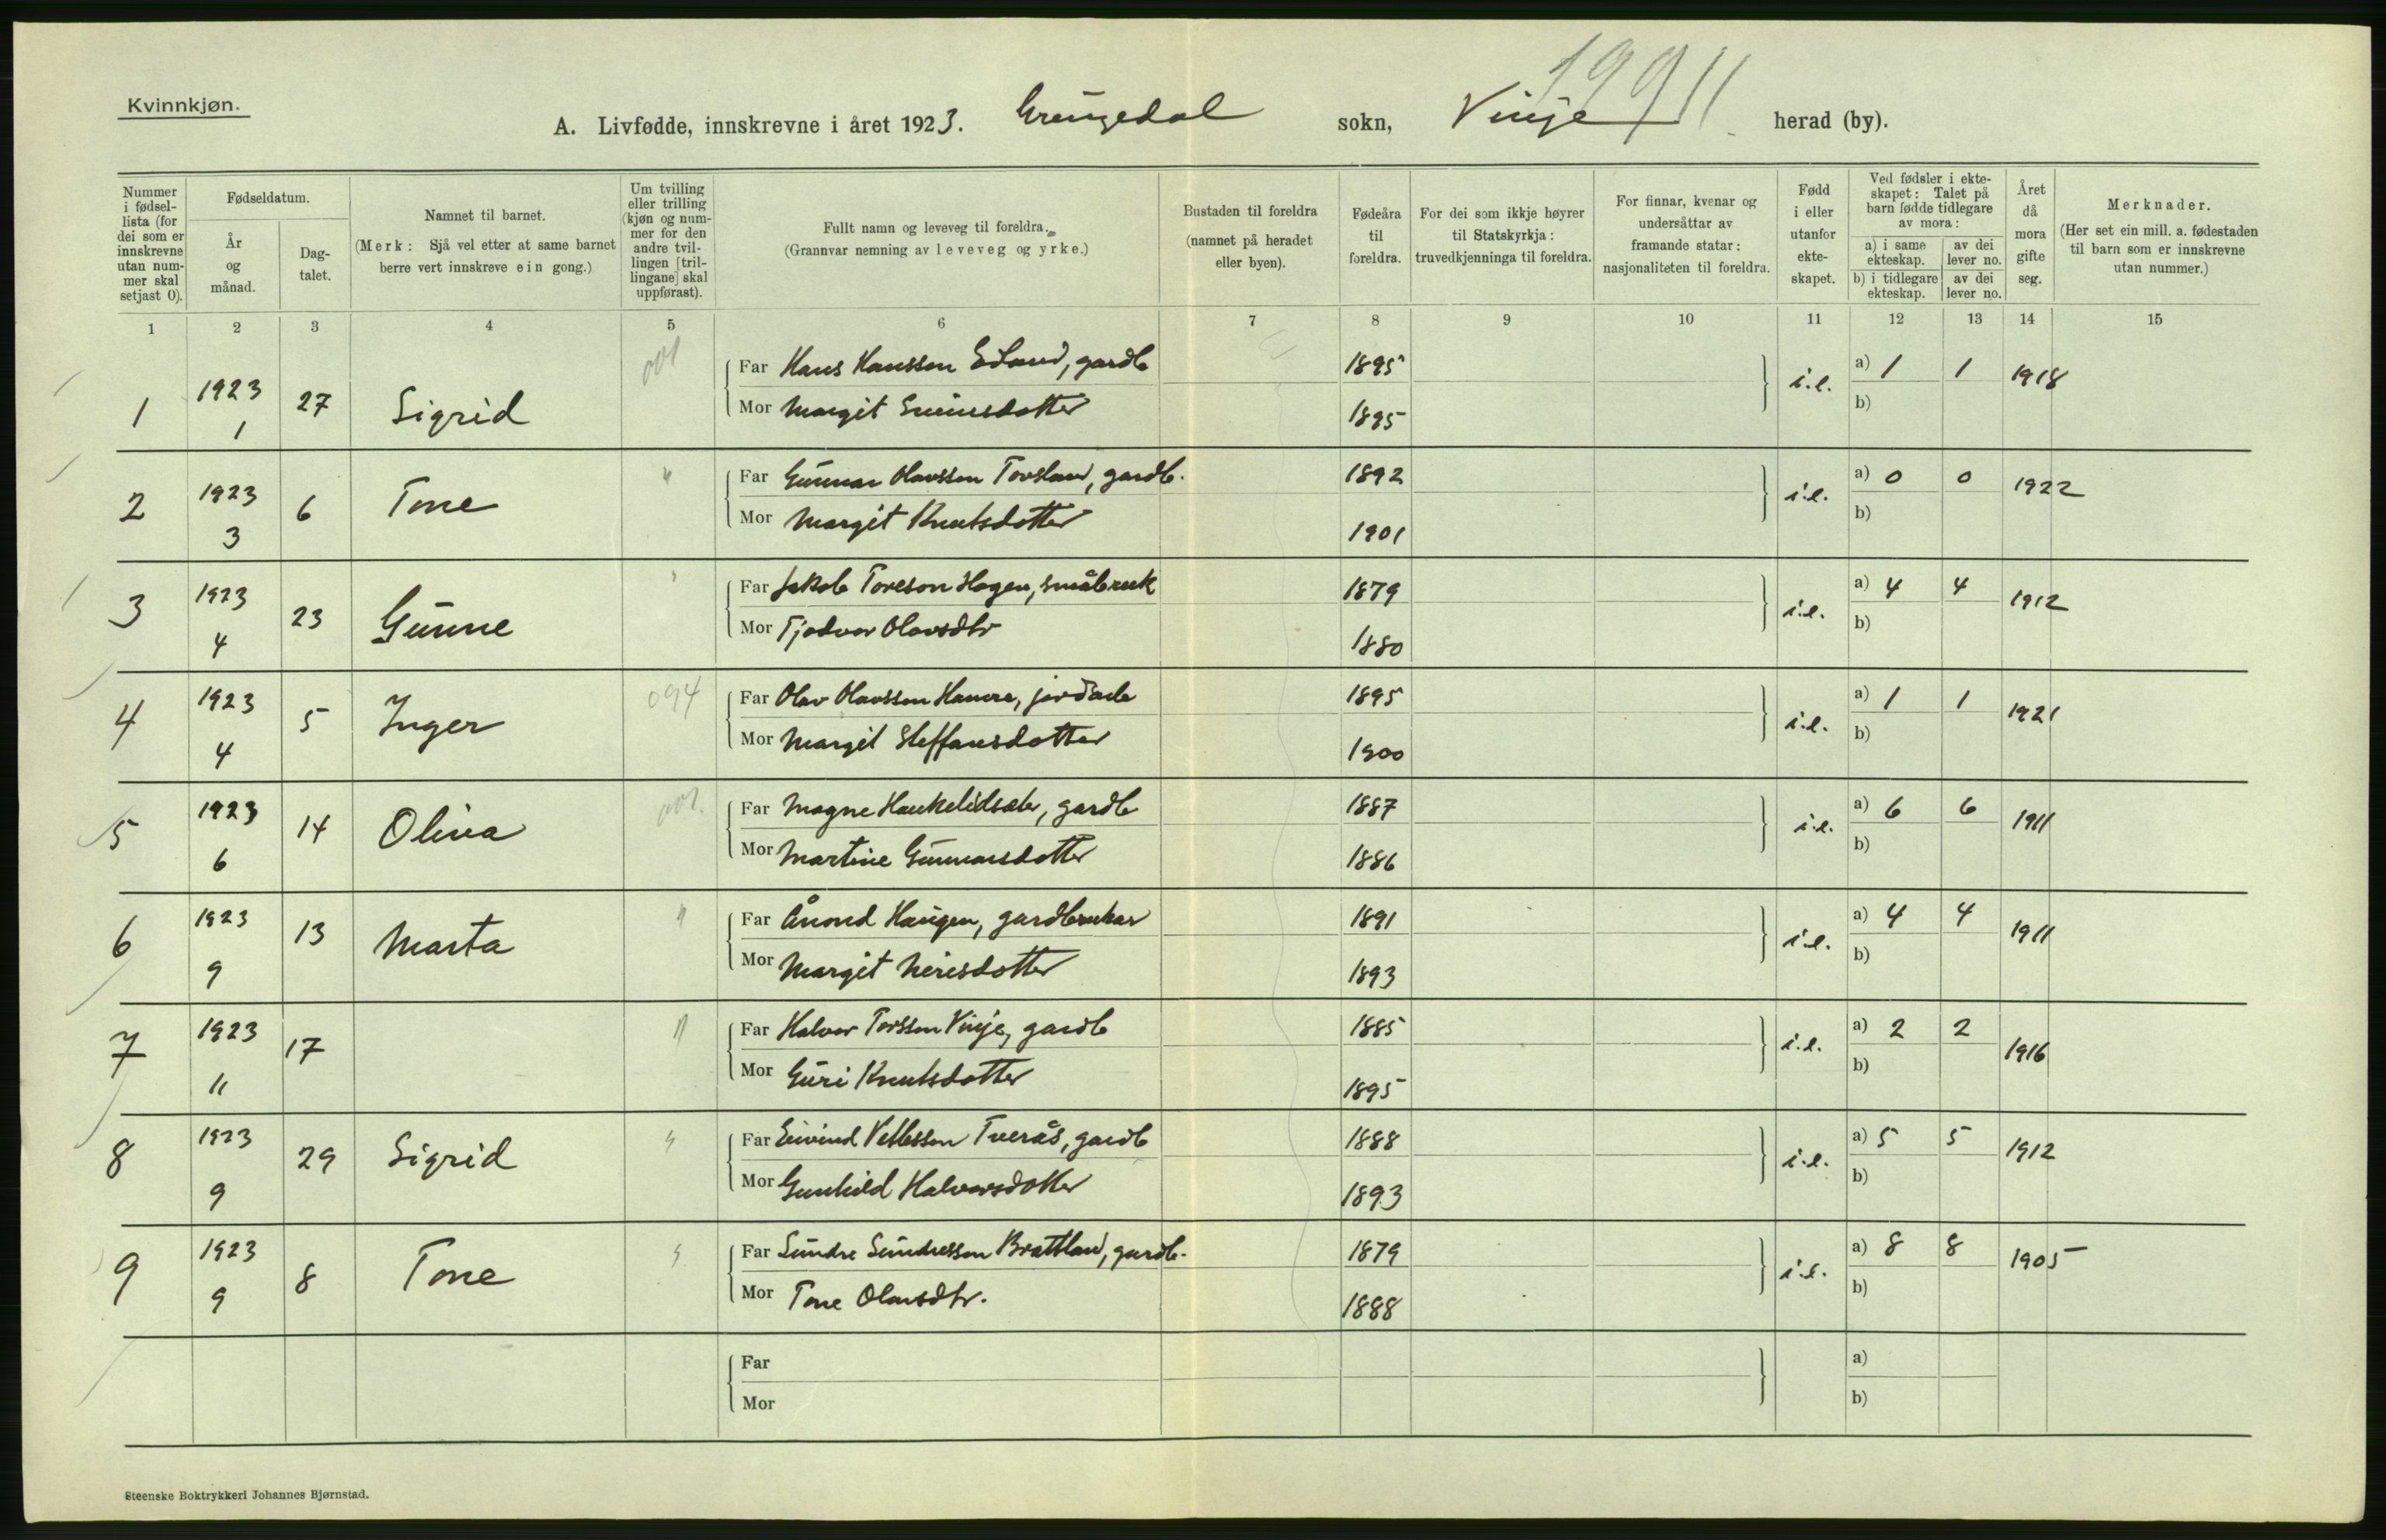 Kvinnkjøn.
A. Livfødde, innskrevne i året 1923. Grungedal sokn, Vinje herad (by).
Nummer i fødsel- lista (for dei som er innskrevne utan num- mer skal setjast 0).
Fødseldatum.
År og månad.
Dag- talet.
Namnet til barnet.
(Merk: Sjå vel etter at same barnet berre vert innskreve ein gong.)
Um tvilling eller trilling (kjøn og num- mer for den andre tvil- lingen [tril- lingane] skal uppførast).
Fullt namn og leveveg til foreldra.
(Grannvar nemning av leveveg og yrke.)
Bustaden til foreldra (namnet på heradet eller byen).
Fødeåra til foreldra.
For dei som ikkje høyrer til Statskyrkja: truvedkjenninga til foreldra.
For finnar, kvenar og undersåttar av framande statar: nasjonaliteten til foreldra.
Fødd i eller utanfor ekte- skapet.
Ved fødsler i ekte- skapet: Talet på barn fødde tidlegare av mora:
a) i same ekteskap. av dei lever no.
b) i tidlegare ekteskap. av dei lever no.
Året då mora gifte seg.
Merknader.
(Her set ein mill. a. fødestaden til barn som er innskrevne utan nummer.)
1 2 3 4 5 6 7 8 9 10 11 12 13 14 15
1 1923 1 27 Sigrid 001
Far Hans Hansson Edland, gardb 1895 i.e. a) 1 1 1918
Mor Margit 1895 b)
2 1923 3 6 Tone "
Far Gunnar Olavsson Tovsland, gardb. 1892 i.e. a) 0 0 1922
Mor Margit Knutsdotter 1901 b)
3 1923 4 23 Gunne "
Far Jakob Toreson Hogen, småbruk 1879 i.e. a) 4 4 1912
Mor Tjodvor Olavsdtr 1880 b)
4 1923 4 5 Inger 094
Far Olav Olavsson Hamre, 1895 i.e. a) 1 1 1921
Mor Margit Steffansdotter 1900 b)
5 1923 6 14 Oliva 001.
Far Magne Haukelidsæter, gardb 1887 i.e. a) 6 6 1911
Mor Martine Gunnarsdotter 1886 b)
6 1923 9 13 Marta "
Far Ånond Haugen, gardbrukar 1891 i.e. a) 4 4 1911
Mor Margit Neriesdotter 1893 b)
7 1923 11 17 "
Far Halvor Torsson Vinje, gardb 1885 i.e. a) 2 2 1916
Mor Guri Knutsdotter 1895 b)
8 1923 9 29 Sigrid "
Far Eivind Vetlesson Tverås, gardb 1888 i.e. a) 5 5 1912
Mor Gunhild Halvorsdotter 1893 b)
9 1923 9 8 Tone "
Far Sundre Sundresson Brattland, gardb. 1879 i.e. a) 8 8 1905
Mor Tone Olavsdtr. 1888 b)
Far a)
Mor b)
Steenske Boktrykkeri Johannes Bjørnstad.